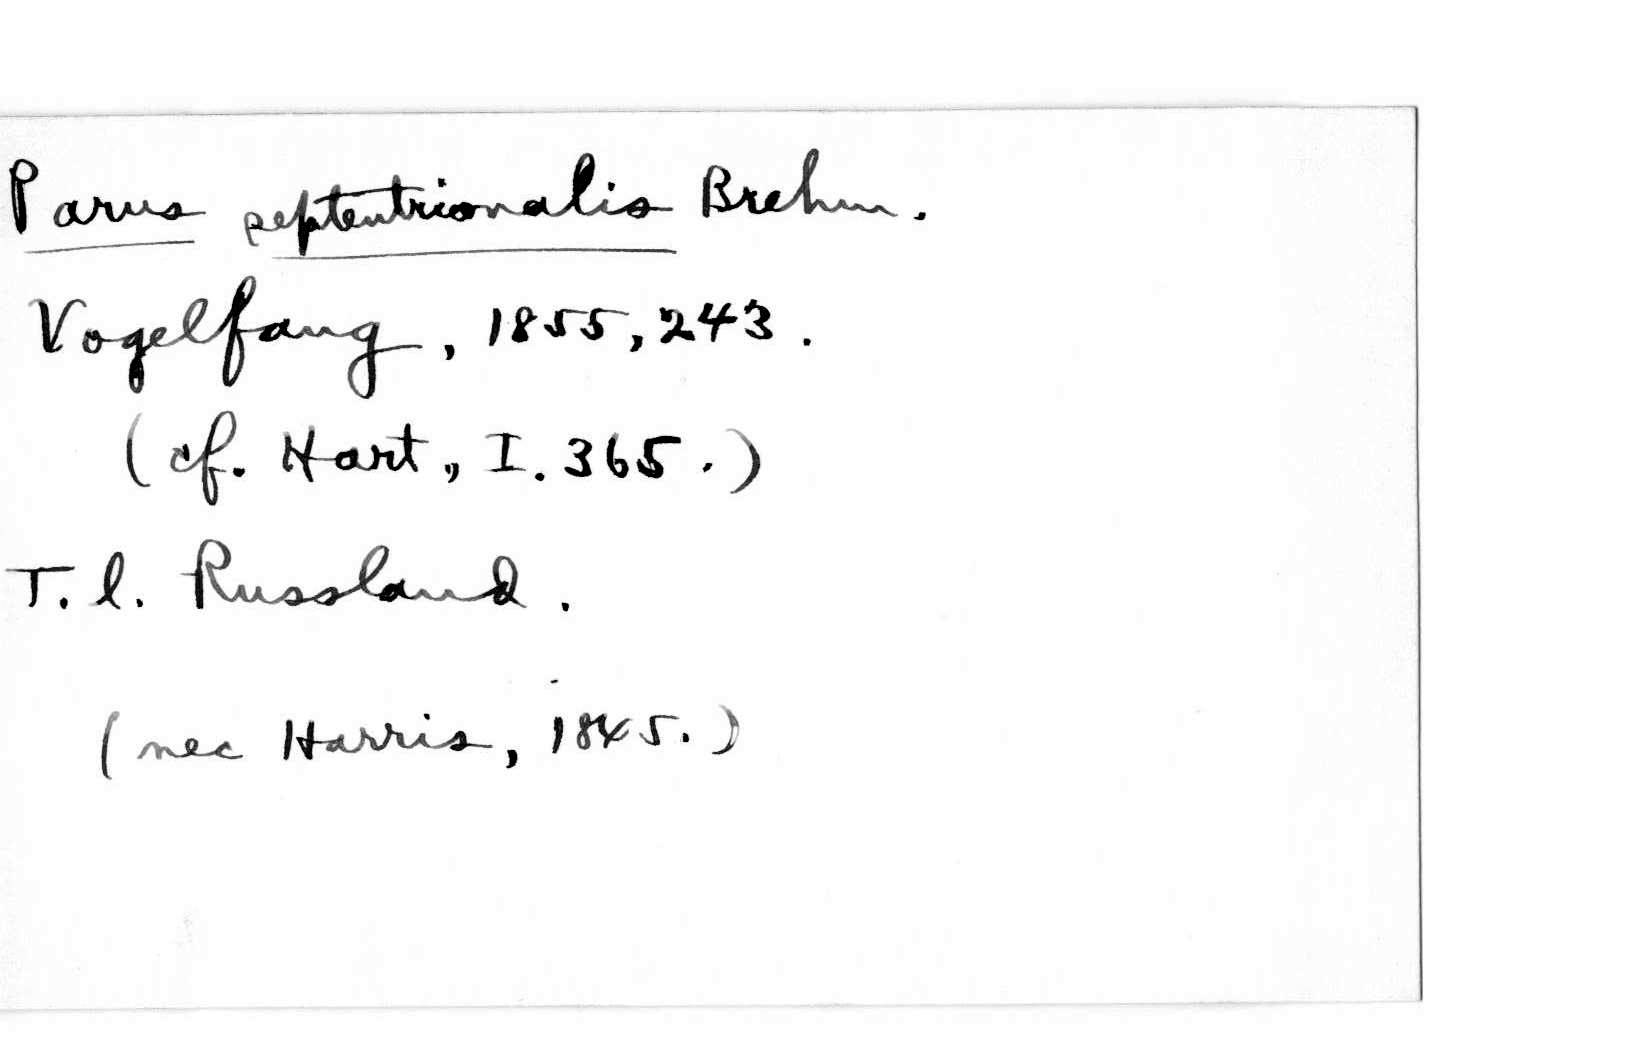 Parus septentrionalis Brehm.
Vogelfang, 1855, 243.
(cf. Hart., I. 365.)
T. l. Russland.
(nec Harris, 1845.)